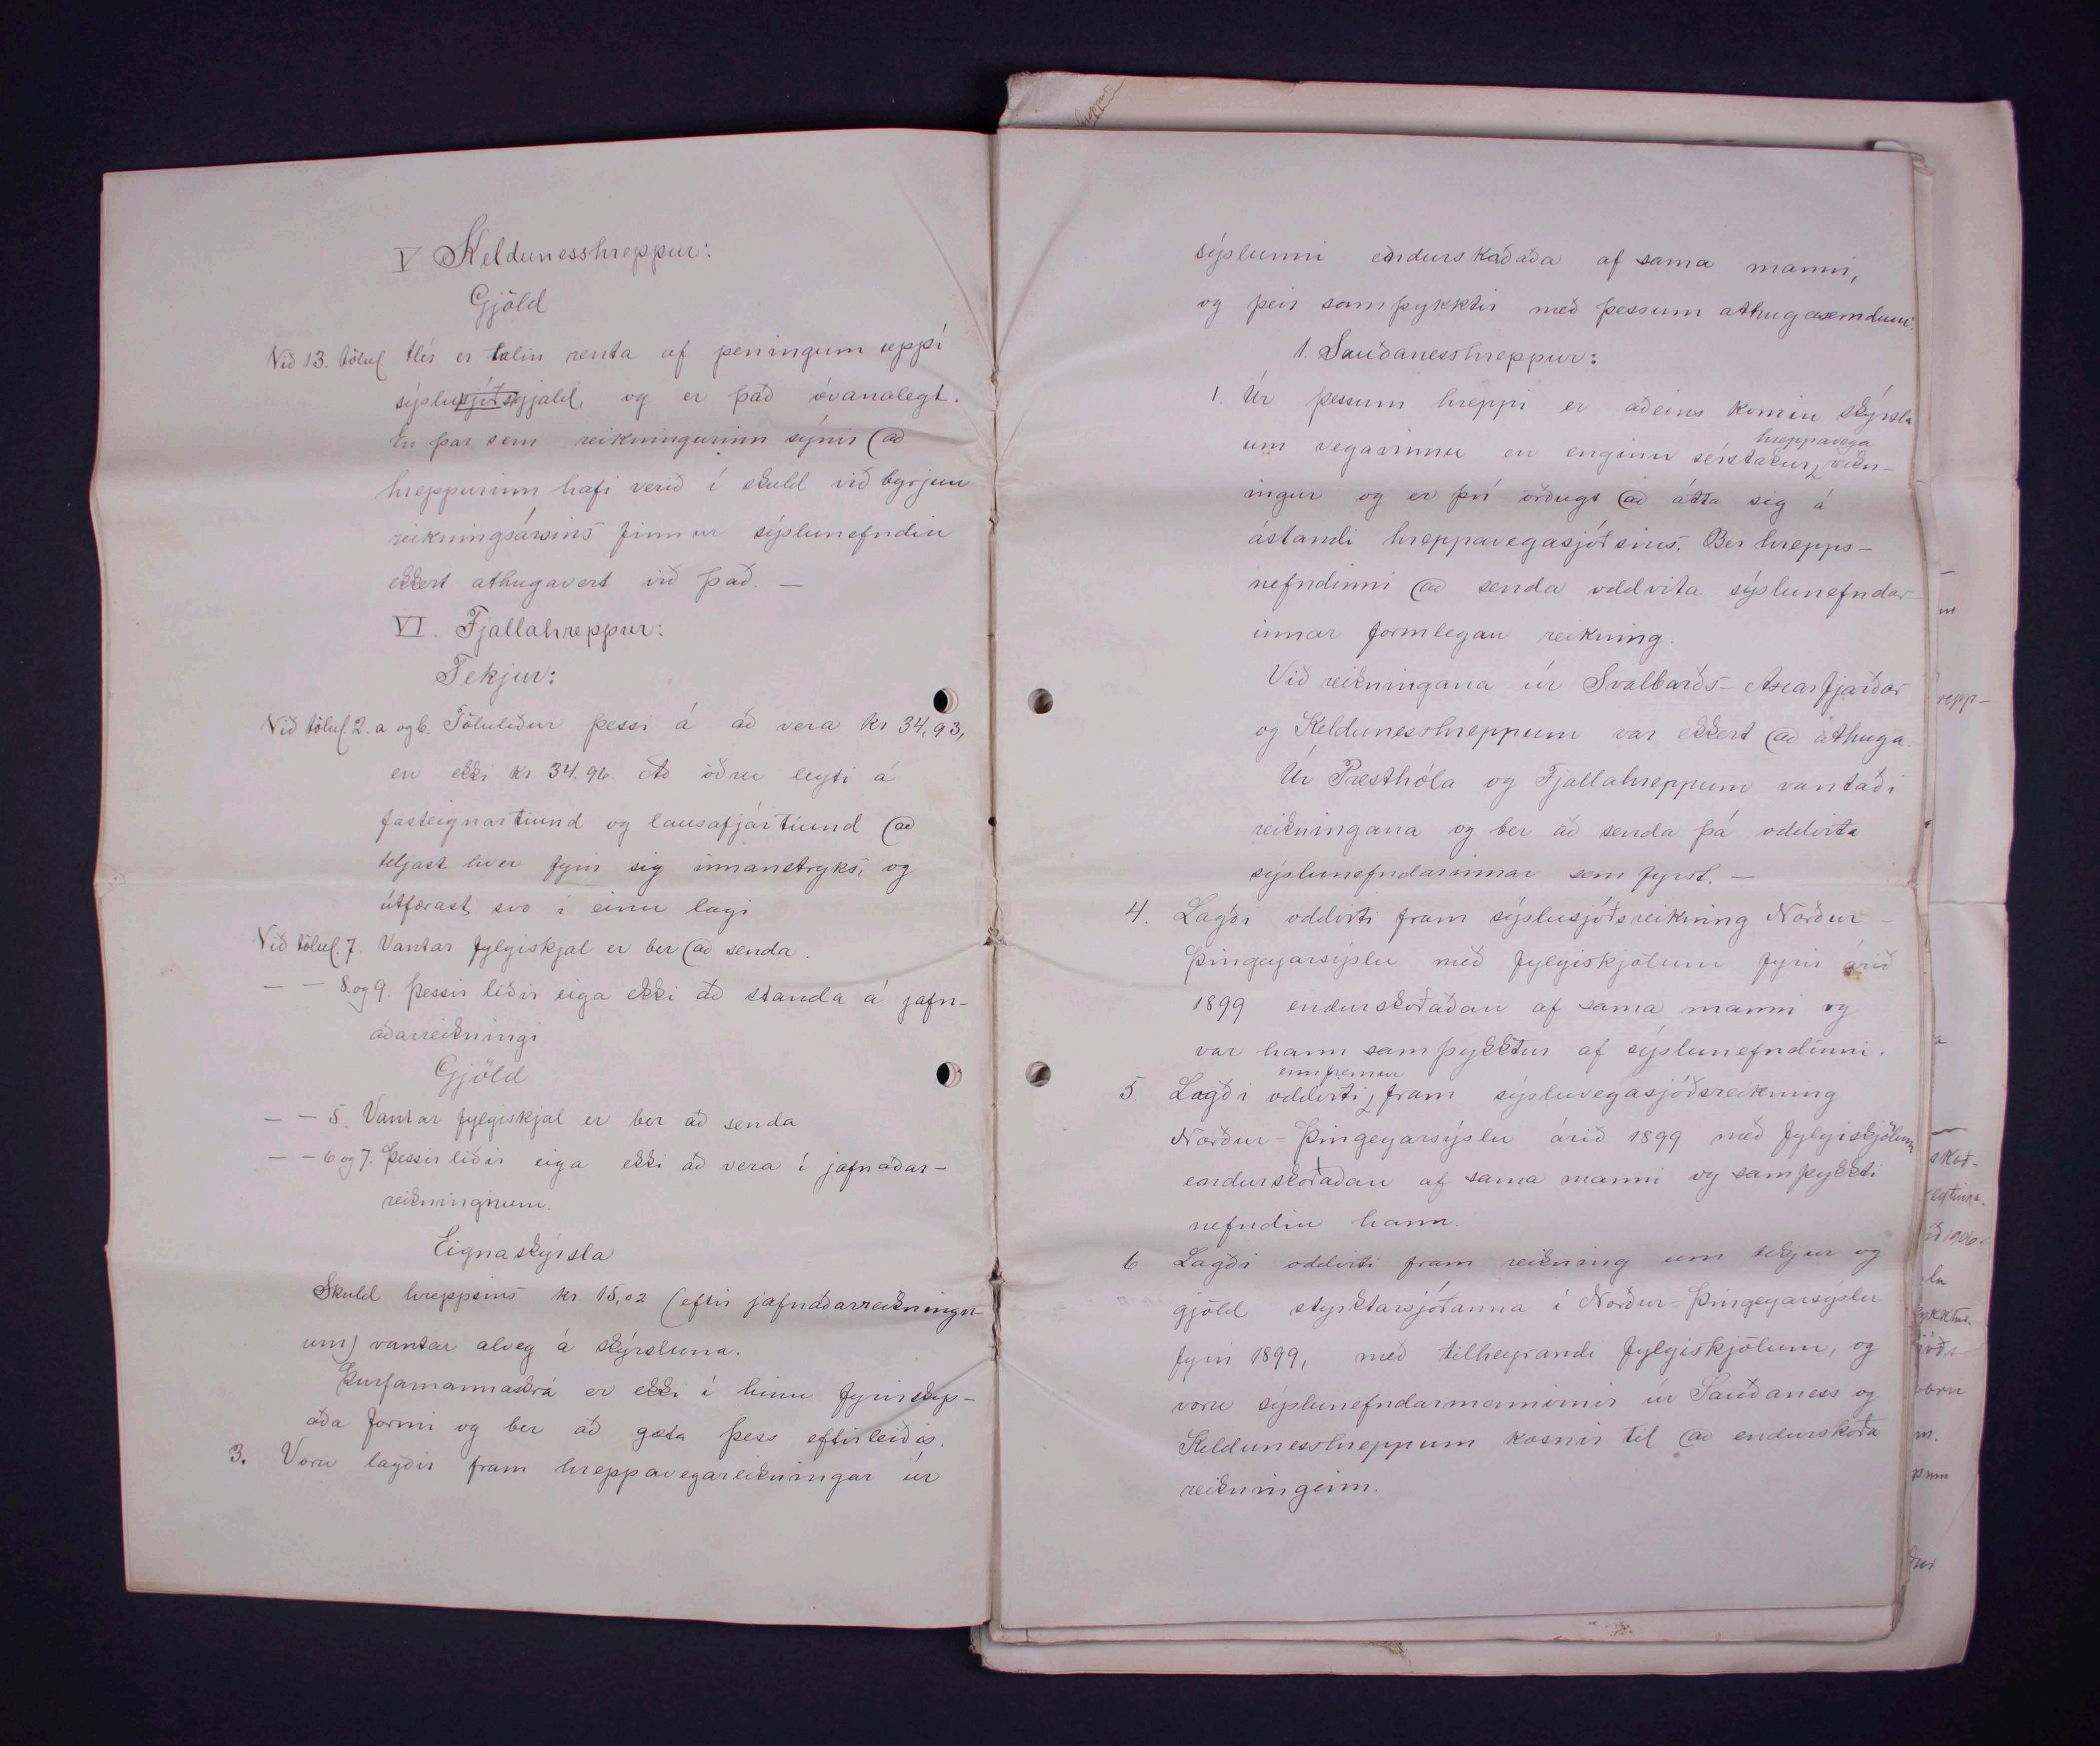 V Keldunesshreppur:
Gjöld
Við 13. tölul Hér er talin renta af peningum uppí
sýslusjóðsgjald, og er það óvanalegt.
En þar sem reikningurinn sýnir að
hreppurinn hafi verið í skuld við byrjun
reikningsársins finnur sýslunefndin
ekkert athugavert við það. —
VI. Fjallahreppur:
Tekjur:
Við tölul. 2. a og b. Töluliður þessi á að vera kr 34,93,
en ekki kr. 34.96. Að öðru leyti á
fasteignartíund og lausafjártíund að
teljast hver fyrir sig innanstryks, og
útfærast svo í einu lagi
Við tölul. 7. Vantar fylgiskjal er ber að senda.
— — 8. og 9. Þessir liðir eiga ekki að standa á jafn-
aðarreikningi
Gjöld
— — 5. Vantar fylgiskjal er ber að senda
— — 6 og 7. Þessir liðir eiga ekki að vera í jafnaðar-
reikningnum.
Eignaskýrsla
Skuld hreppsins kr. 15,02 (eftir jafnaðarreikningn-
um) vantar alveg á skýrsluna.
Þurfamannaskrá er ekki í hinu fyrirskip-
aða formi og ber að gæta þess eftirleiðis.
3. Voru lagðir fram hreppavegareikningar úr
sýslunni endurskoðaða af sama manni,
og þeir samþykktir með þessum athugasemdum:
1. Sauðanesshreppur:
1. Úr þessum hreppi er aðeins komin skýrsla
um vegavinnu en enginn sérstakur hreppavega reikn-
ingur og er því örðugt að átta sig á
ástandi hreppavegasjóðsins. Ber hrepps-
nefndinni að senda oddvita sýslunefndar-
innar formlegan reikning.
Við reikningana úr Svalbarðs- Axarfjarðar
og Keldunesshreppum var ekkert að athuga.
Úr Presthóla og Fjallahreppum vantaði
reikningana og ber að senda þá oddvita
sýslunefndarinnar sem fyrst. —
4. Lagði oddviti fram sýslusjóðsreikning Norður-
Þingeyarsýslu með fylgiskjölum fyrir árið
1899 endurskoðaðan af sama manni og
var hann samþykktur af sýslunefndinni.
5. Lagði oddviti ennfremur fram sýsluvegasjóðsreikning
Norður=Þingeyarsýslu árið 1899 með fylgiskjölum
endurskoðaðan af sama manni og samþykkti
nefndin hann.
6 Lagði oddviti fram reikning um tekjur og
gjöld styrktarsjóðanna í Norður=Þingeyarsýslu
fyrir 1899, með tilheyrandi fylgiskjölum, og
voru sýslunefndarmennirnir úr Sauðaness og
Keldunesshreppum kosnir til að endurskoða
reikninginn.